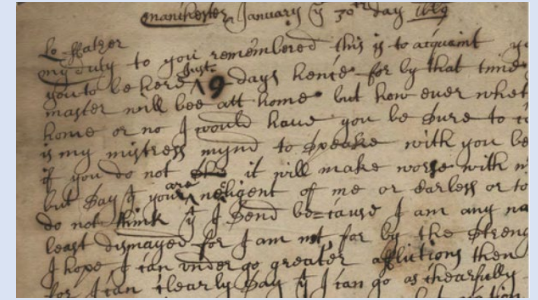 manchester January ye 30th day 1689
Lo-ffather
my duty to you remembered this is to acquaint yo
you to be here just 9 days hence for by that time
master will bee att home but how ever whet
home or no I would have you be sure to
is my mistress mynd to speake with you be
if you do not it will make worse with m
but say yt your are neligent of me or earless or to
do not think yt I send be=cause I am any na
least dismayed for I am not for by the streng
I hope I can undergo greater aflutions then
for I can clearly say I can go as chearfully